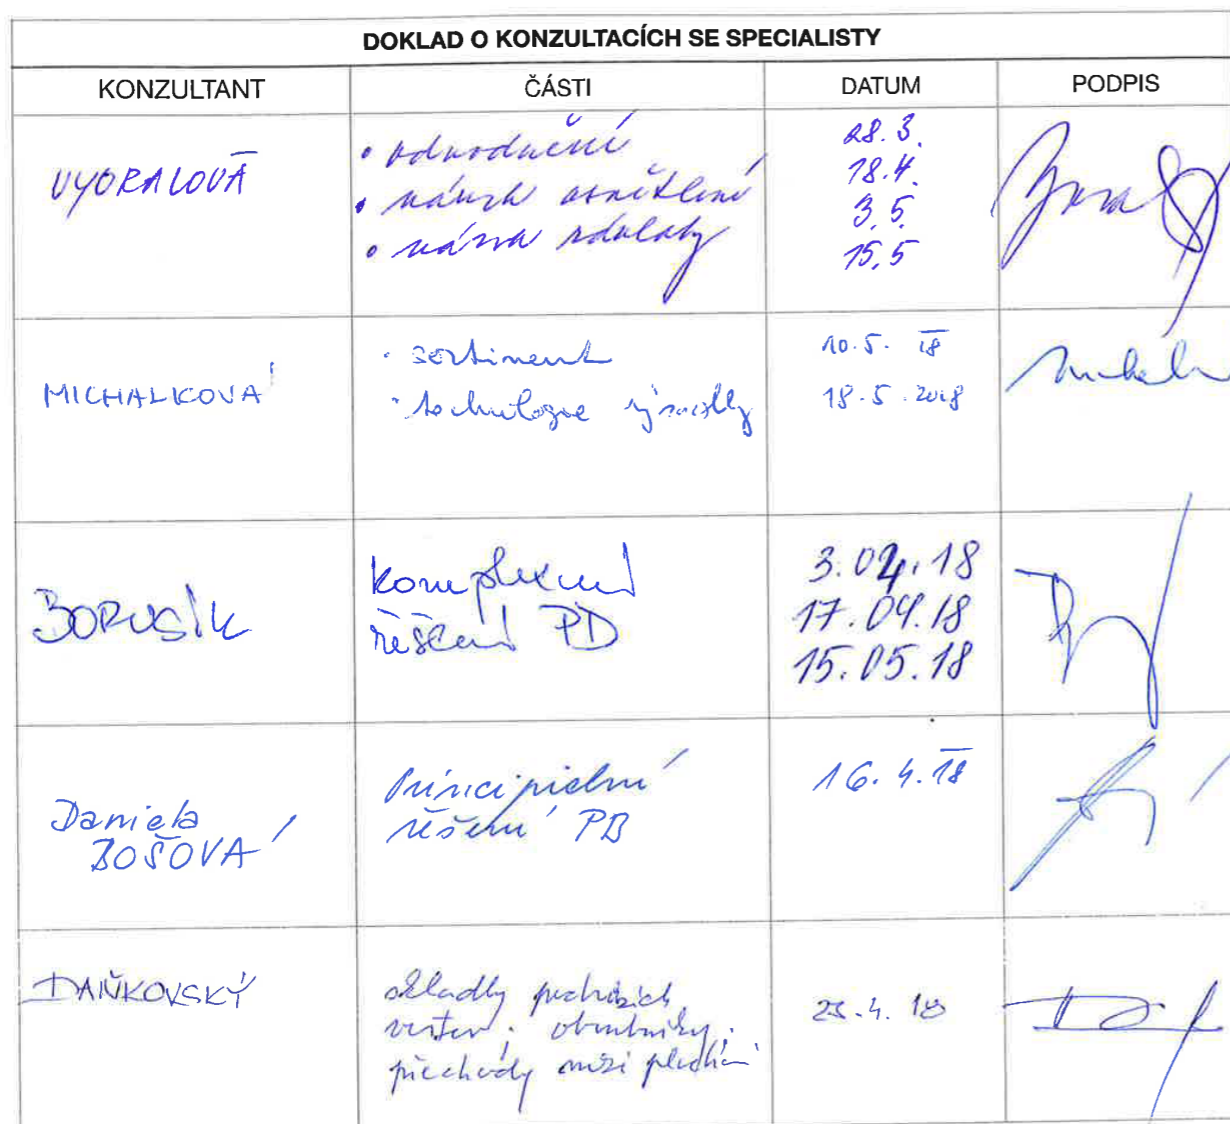 DOKLAD O KONZULTACÍCH SE SPECIALISTY
KONZULTANT ČÁSTI DATUM PODPIS
VYORALOVÁ
• odvodnění
• návrh osvětlení
• návrh
28.3.
18.4.
3.5.
15.5
MICHALKOVÁ
• sortiment
• technologie výsadby
10.5. 18
18.5.2018
BORUSÍK
komplexní
řešení PD
3.04.18
17.04.18
15.05.18
Daniela
BOŠOVÁ
Principielní
řešení PB
16.4.18
DAŇKOVSKÝ
skladby pochozích
vrstev, obrubníky,
přechody mezi plochami
.4.18